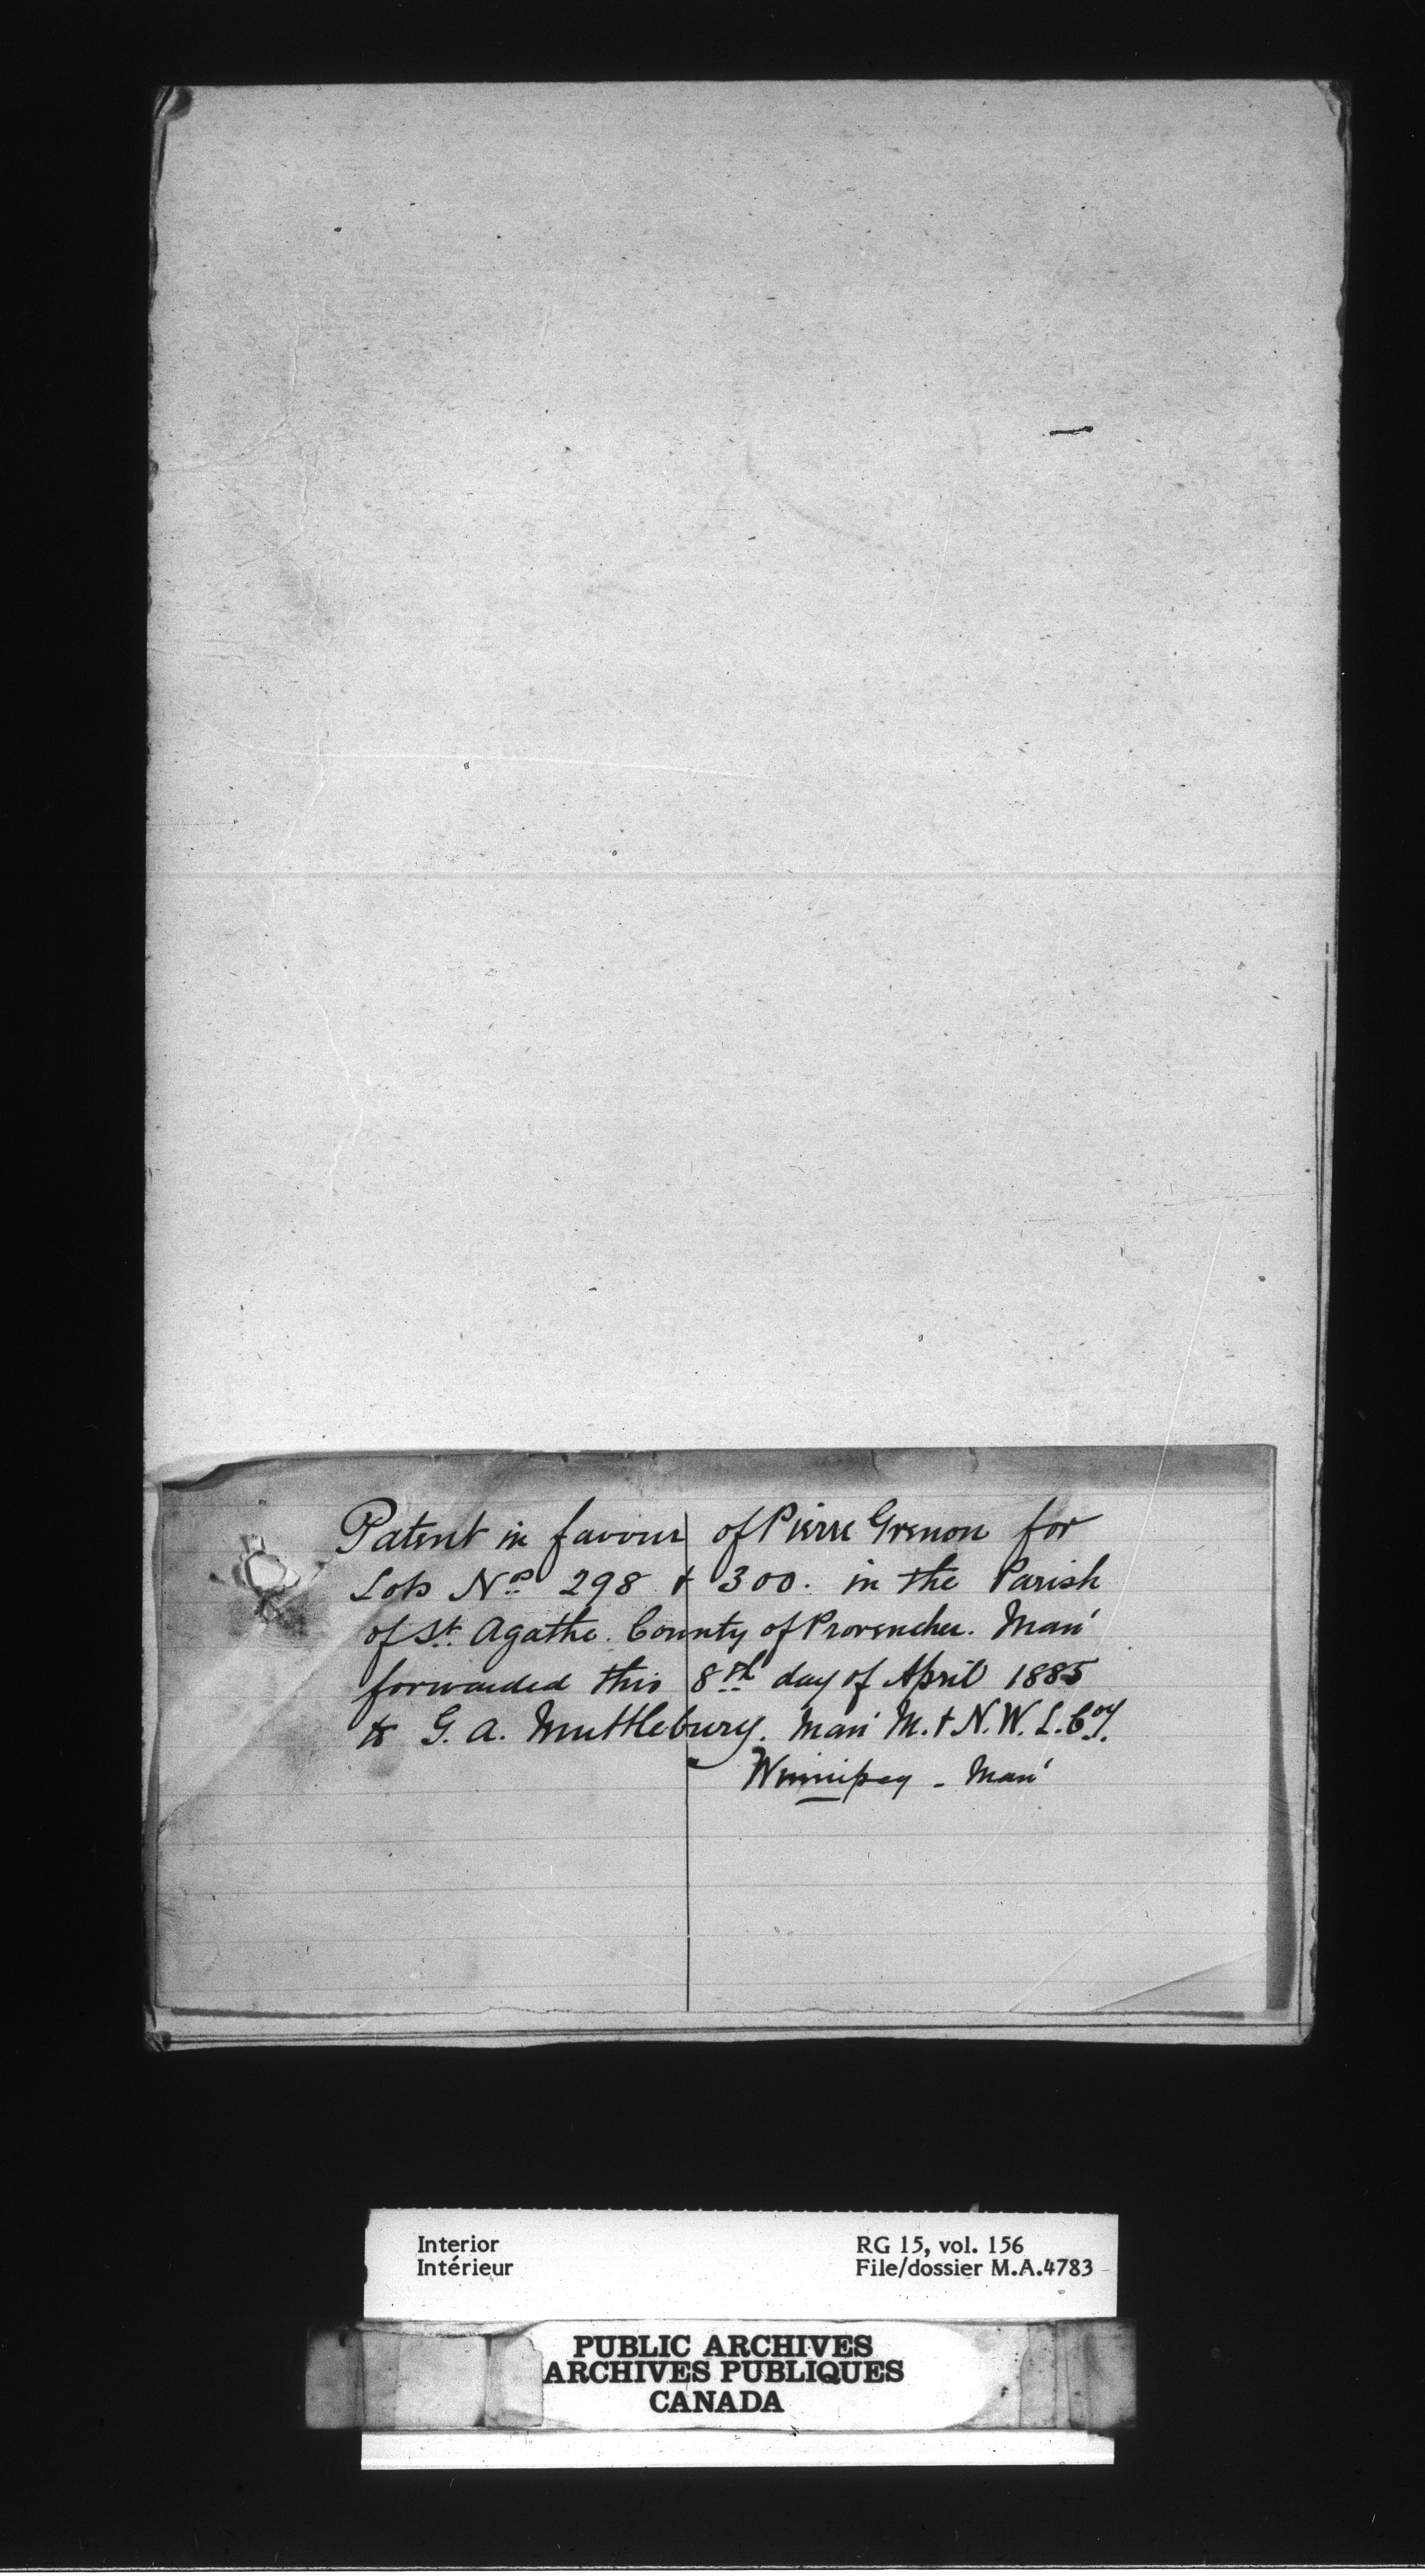 Patent in favour of Pierre Grenon for
Lots Nos 298 & 300. in the Parish
of St. Agathe. County of Provencher. Man'
forwarded this 8th day of April 1885
to G. A. Muttlebury. Man' M. & N. W. L. Coy.
Winnipeg - Man'
Interior
Intérieur
RG 15, vol. 156
File/dossier M.A.4783
PUBLIC ARCHIVES
ARCHIVES PUBLIQUES
CANADA